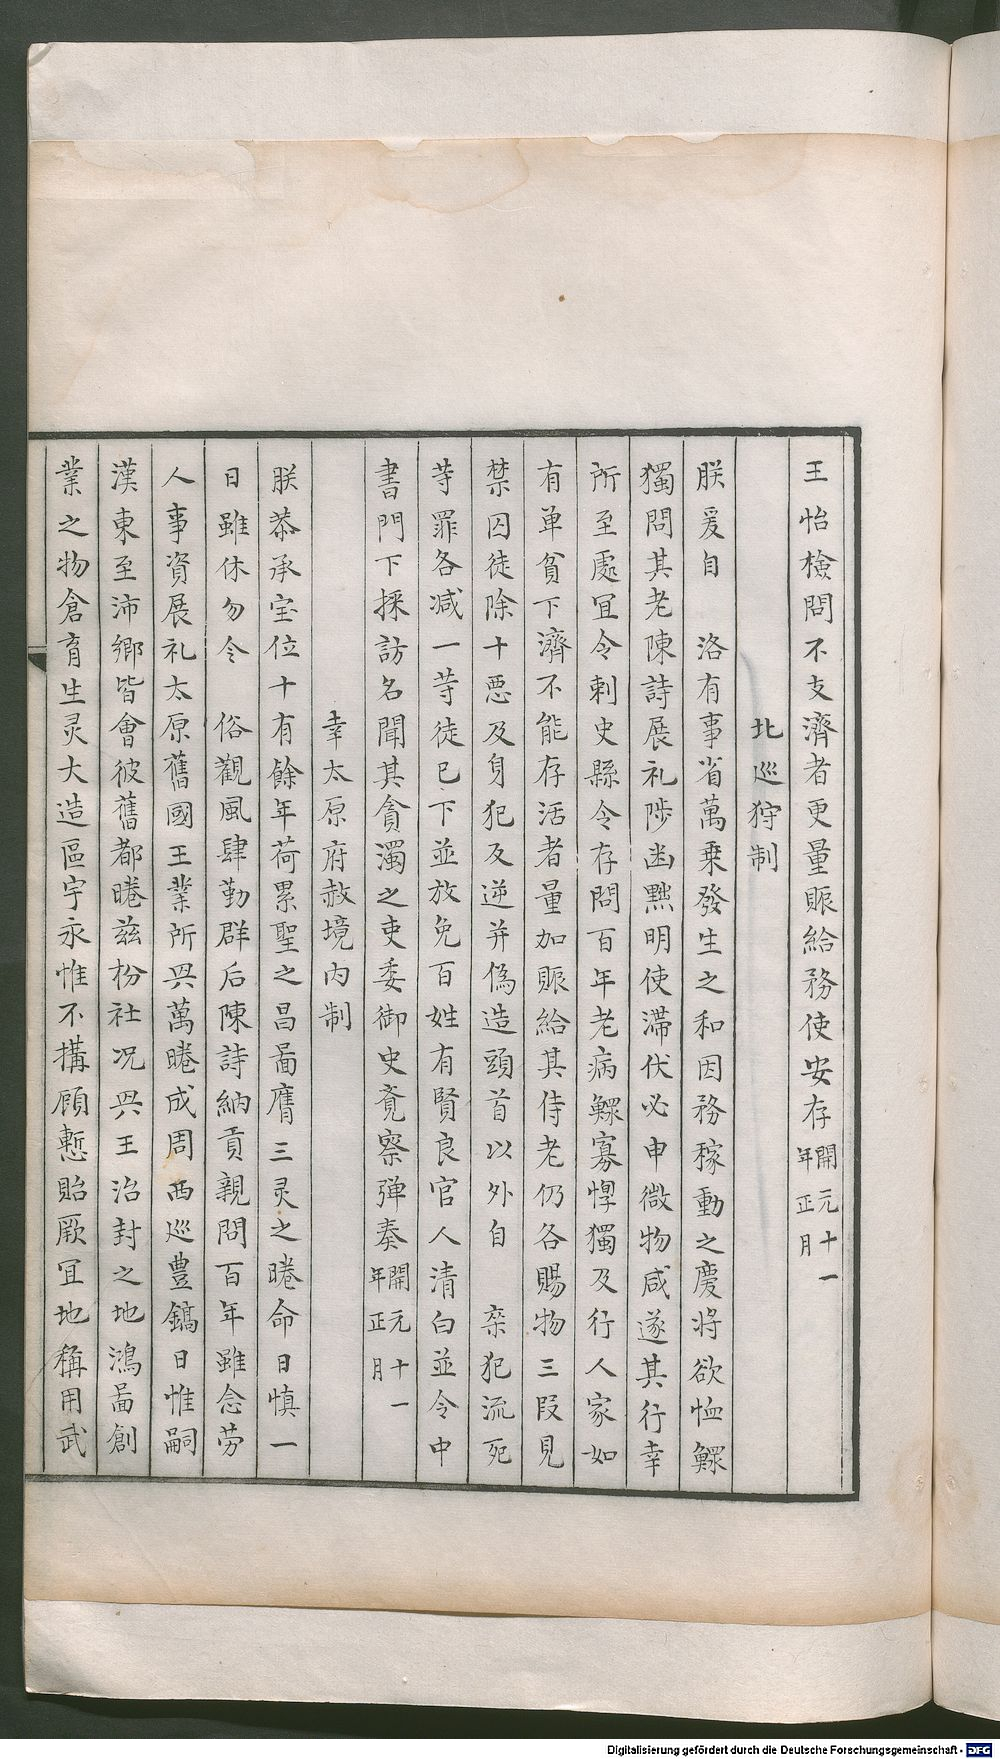 王怡檢問不支濟者更量賑給務使安存開元十一年正月
北巡狩制
朕爰自　洛有事省萬乗發生之和因務稼動之慶將欲恤鰥
獨問其老陳詩展礼陟幽黙明使滯伏必申微物咸遂其行幸
所至處冝令刺史縣令存問百年老病鰥寡惸獨及行人家如
有单貧下濟不能存活者量加賑給其侍老仍各賜物三段見
禁囚徒除十惡及身犯反逆并偽造頭首以外自　桒犯流死
䓁罪各减一䓁徒已下並放免百姓有賢良官人清白並令中
書門下採訪名聞其貪濁之吏委御史竟察弹奏開元十一年正月
幸太原府赦境内制
朕恭承宝位十有餘年荷累聖之昌啚膺三灵之睠命日慎一
日雖休勿令　俗觀風肆勤群后陳詩納貢親問百年雖念劳
人事資展礼太原舊國王業所㒷萬睠成周西巡豊鎬日惟嗣
漢東至沛鄉皆會彼舊都睠兹枌社况㒷王治封之地鴻啚創
業之物倉育生灵大造區宇永惟不搆顧慙貽厥冝地稱用武
Digitalisierung gefördert durch die Deutsche Forschungsgemeinschaft - DFG